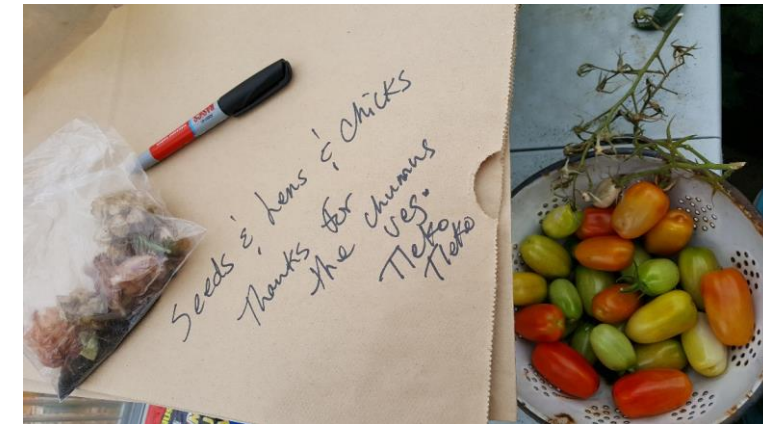 Seeds & hens & chicks
Thanks for
the chumus
veg.
Tleko
Tleko